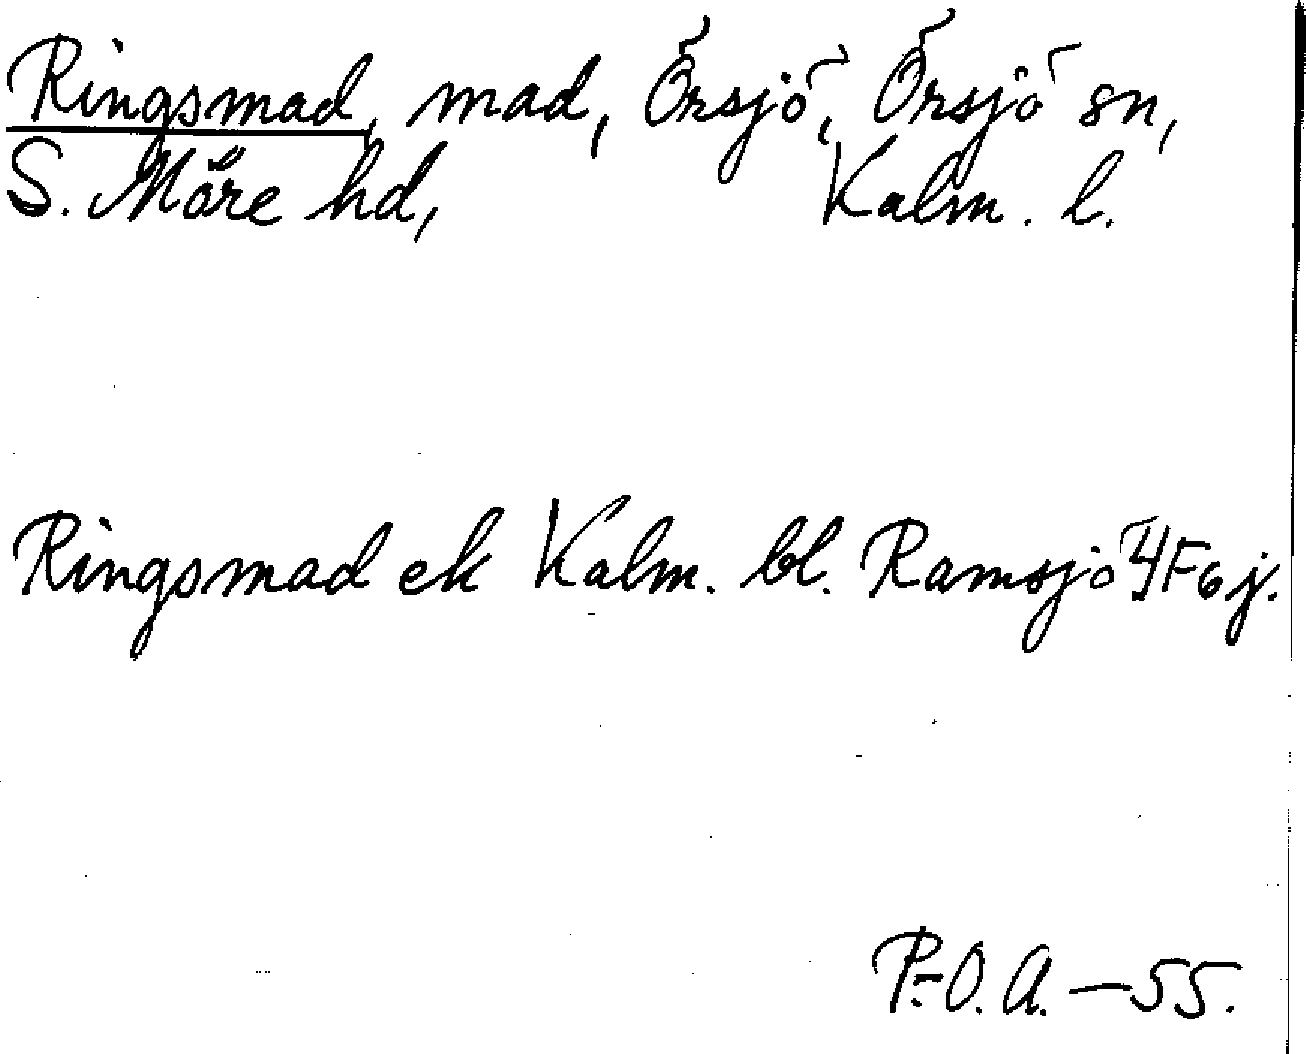 Ringsmad, mad, Örsjö, Örsjö sn,
S. Möre hd, Kalm. l.
Ringsmad ek Kalm. bl. Ramsjö 4F6j.
P.-O. A. – 55.